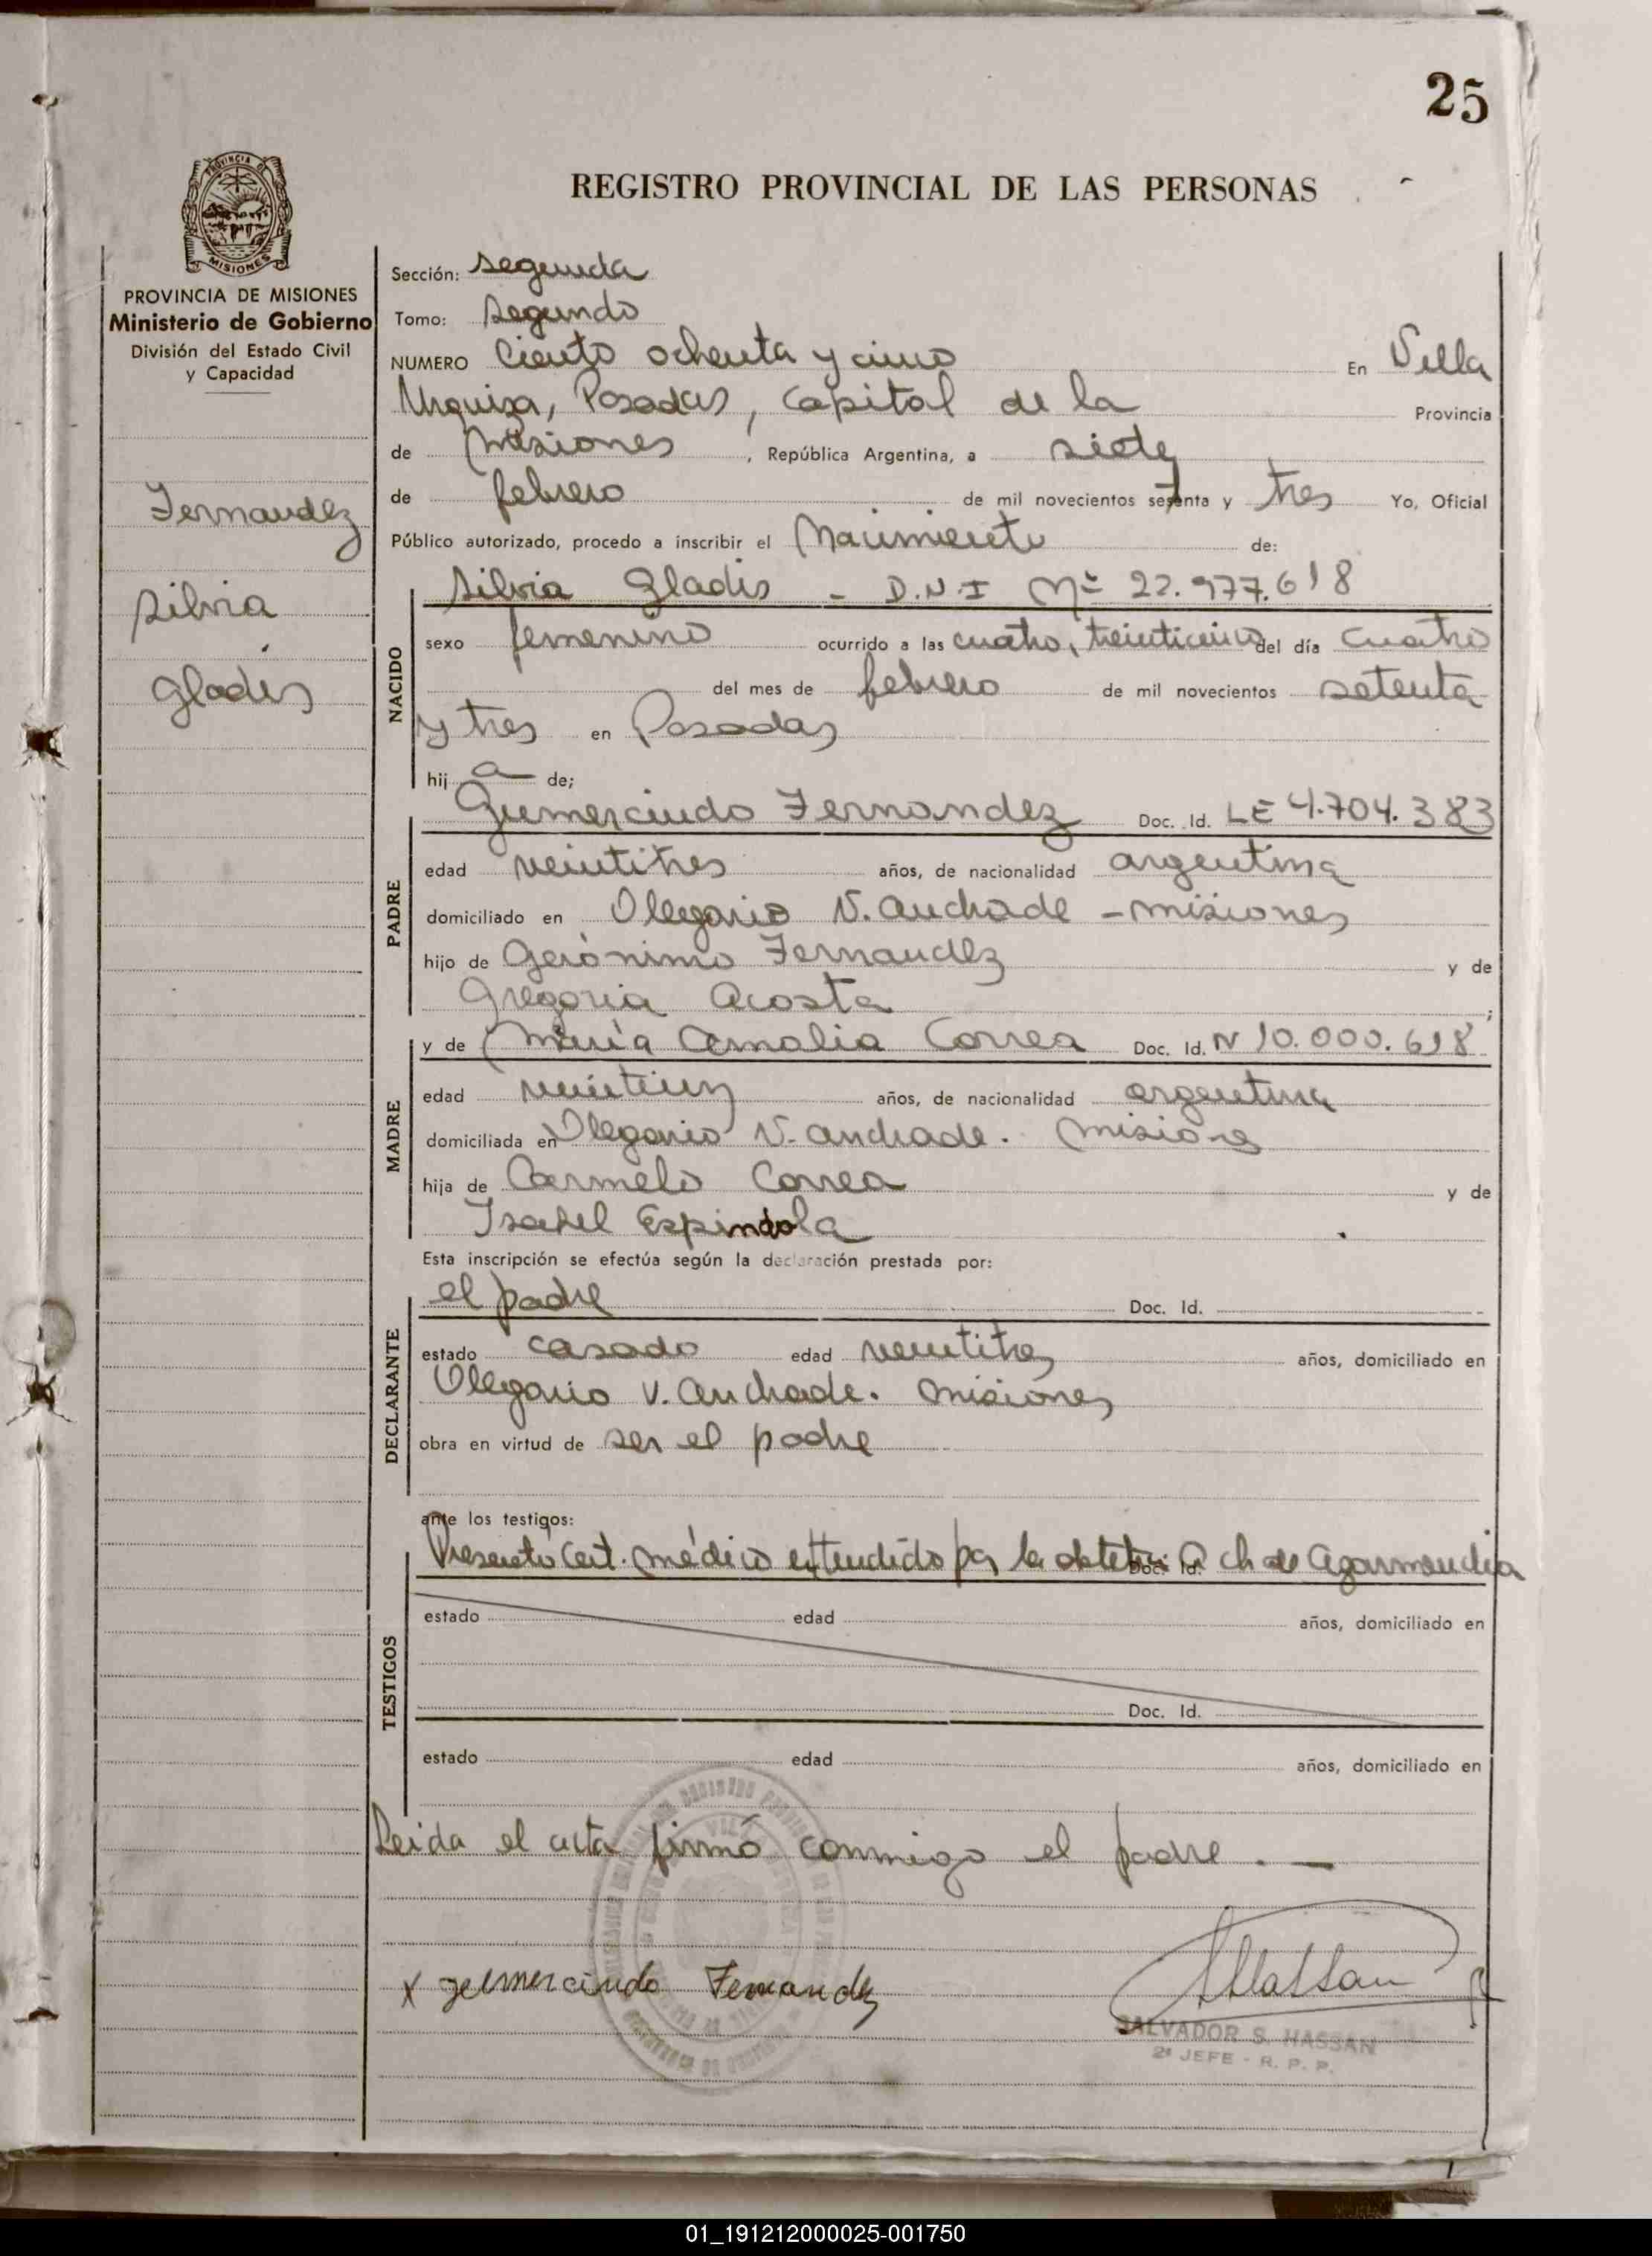 25
REGISTRO PROVINCIAL DE LAS PERSONAS
PROVINCIA DE
MISIONES
PROVINCIA DE MISIONES
Ministerio de Gobierno
División del Estado Civil
y Capacidad
Fernandez
Silvia
Gladis
Sección: Segunda
Tomo: Segundo
NUMERO Ciento ochenta y cinco En Villa
Urquiza, Posadas, Capital de la Provincia
de Misiones, República Argentina, a siete
de febrero de mil novecientos setenta y tres Yo, Oficial
Público autorizado, procedo a inscribir el Nacimiento de:
Silvia Gladis - D.N.I Nº 22.977.618
NACIDO
sexo femenino ocurrido a las cuatro, treinticinco del día cuatro
del mes de febrero de mil novecientos setenta
y tres en Posadas
hij a de;
Gumercindo Fernandez Doc. Id. LE 4.704.383
PADRE
edad veintitres años, de nacionalidad argentina
domiciliado en Olegario V. Andrade - Misiones
hijo de Gerónimo Fernandez y de
Gregoria Acosta;
y de María Amalia Correa Doc. Id. N 10.000.618
MADRE
edad años, de nacionalidad argentina
domiciliada en Olegario V. Andrade. Misiones
hija de Carmelo Correa y de
Isabel Espindola
Esta inscripción se efectúa según la declaración prestada por:
el padre Doc. Id.
DECLARANTE
estado casado edad veintitres años, domiciliado en
Olegario V. Andrade. Misiones
obra en virtud de ser el padre
ante los testigos:
Presentó Cert. médico extendido por la obstetra Doc. Id. ch de Agarmendia
TESTIGOS
estado edad años, domiciliado en
Doc. Id.
estado edad años, domiciliado en
Leida el acta firmó conmigo el padre. -
x gumercindo Fernandez
SALVADOR S. HASSAN
2º JEFE - R. P. P.
01_191212000025-001750